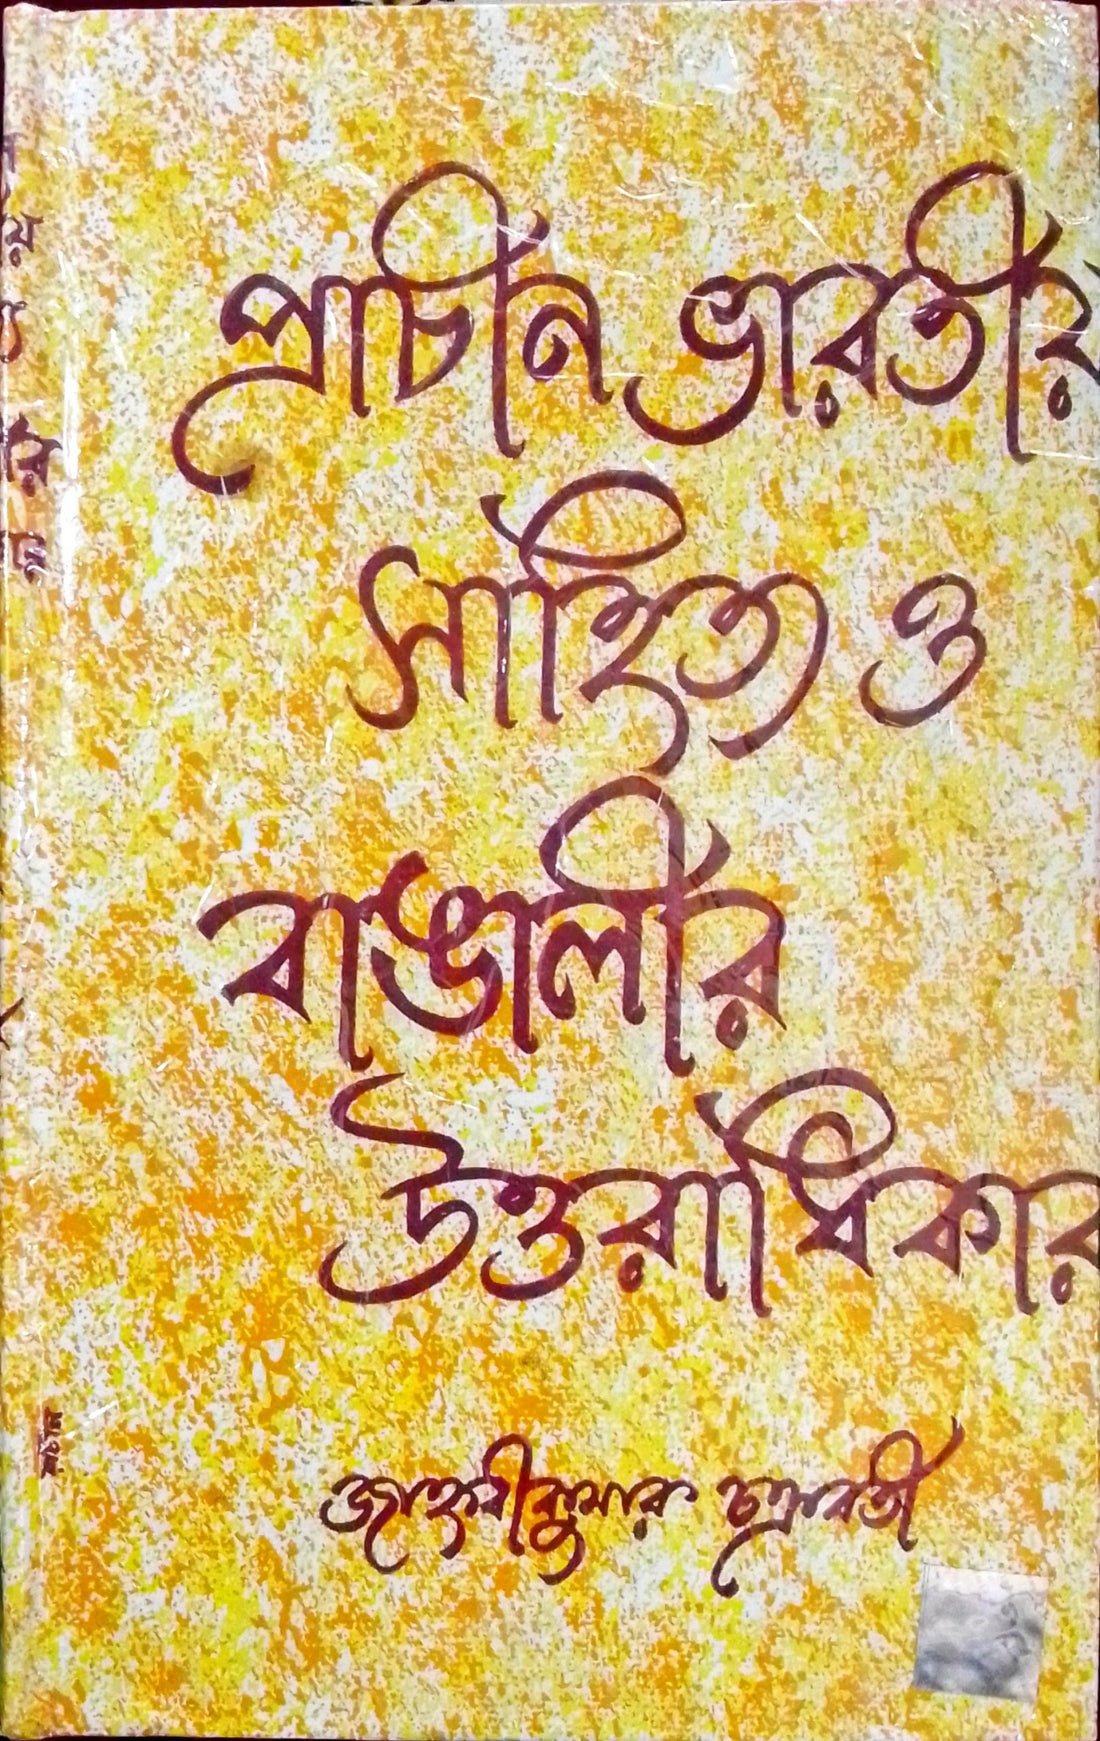 প্রাচীন ভারতীয়
সাহিত্য ও
বাঙালীর
উত্তরাধিকার
জাহ্নবীকুমার চক্রবর্তী